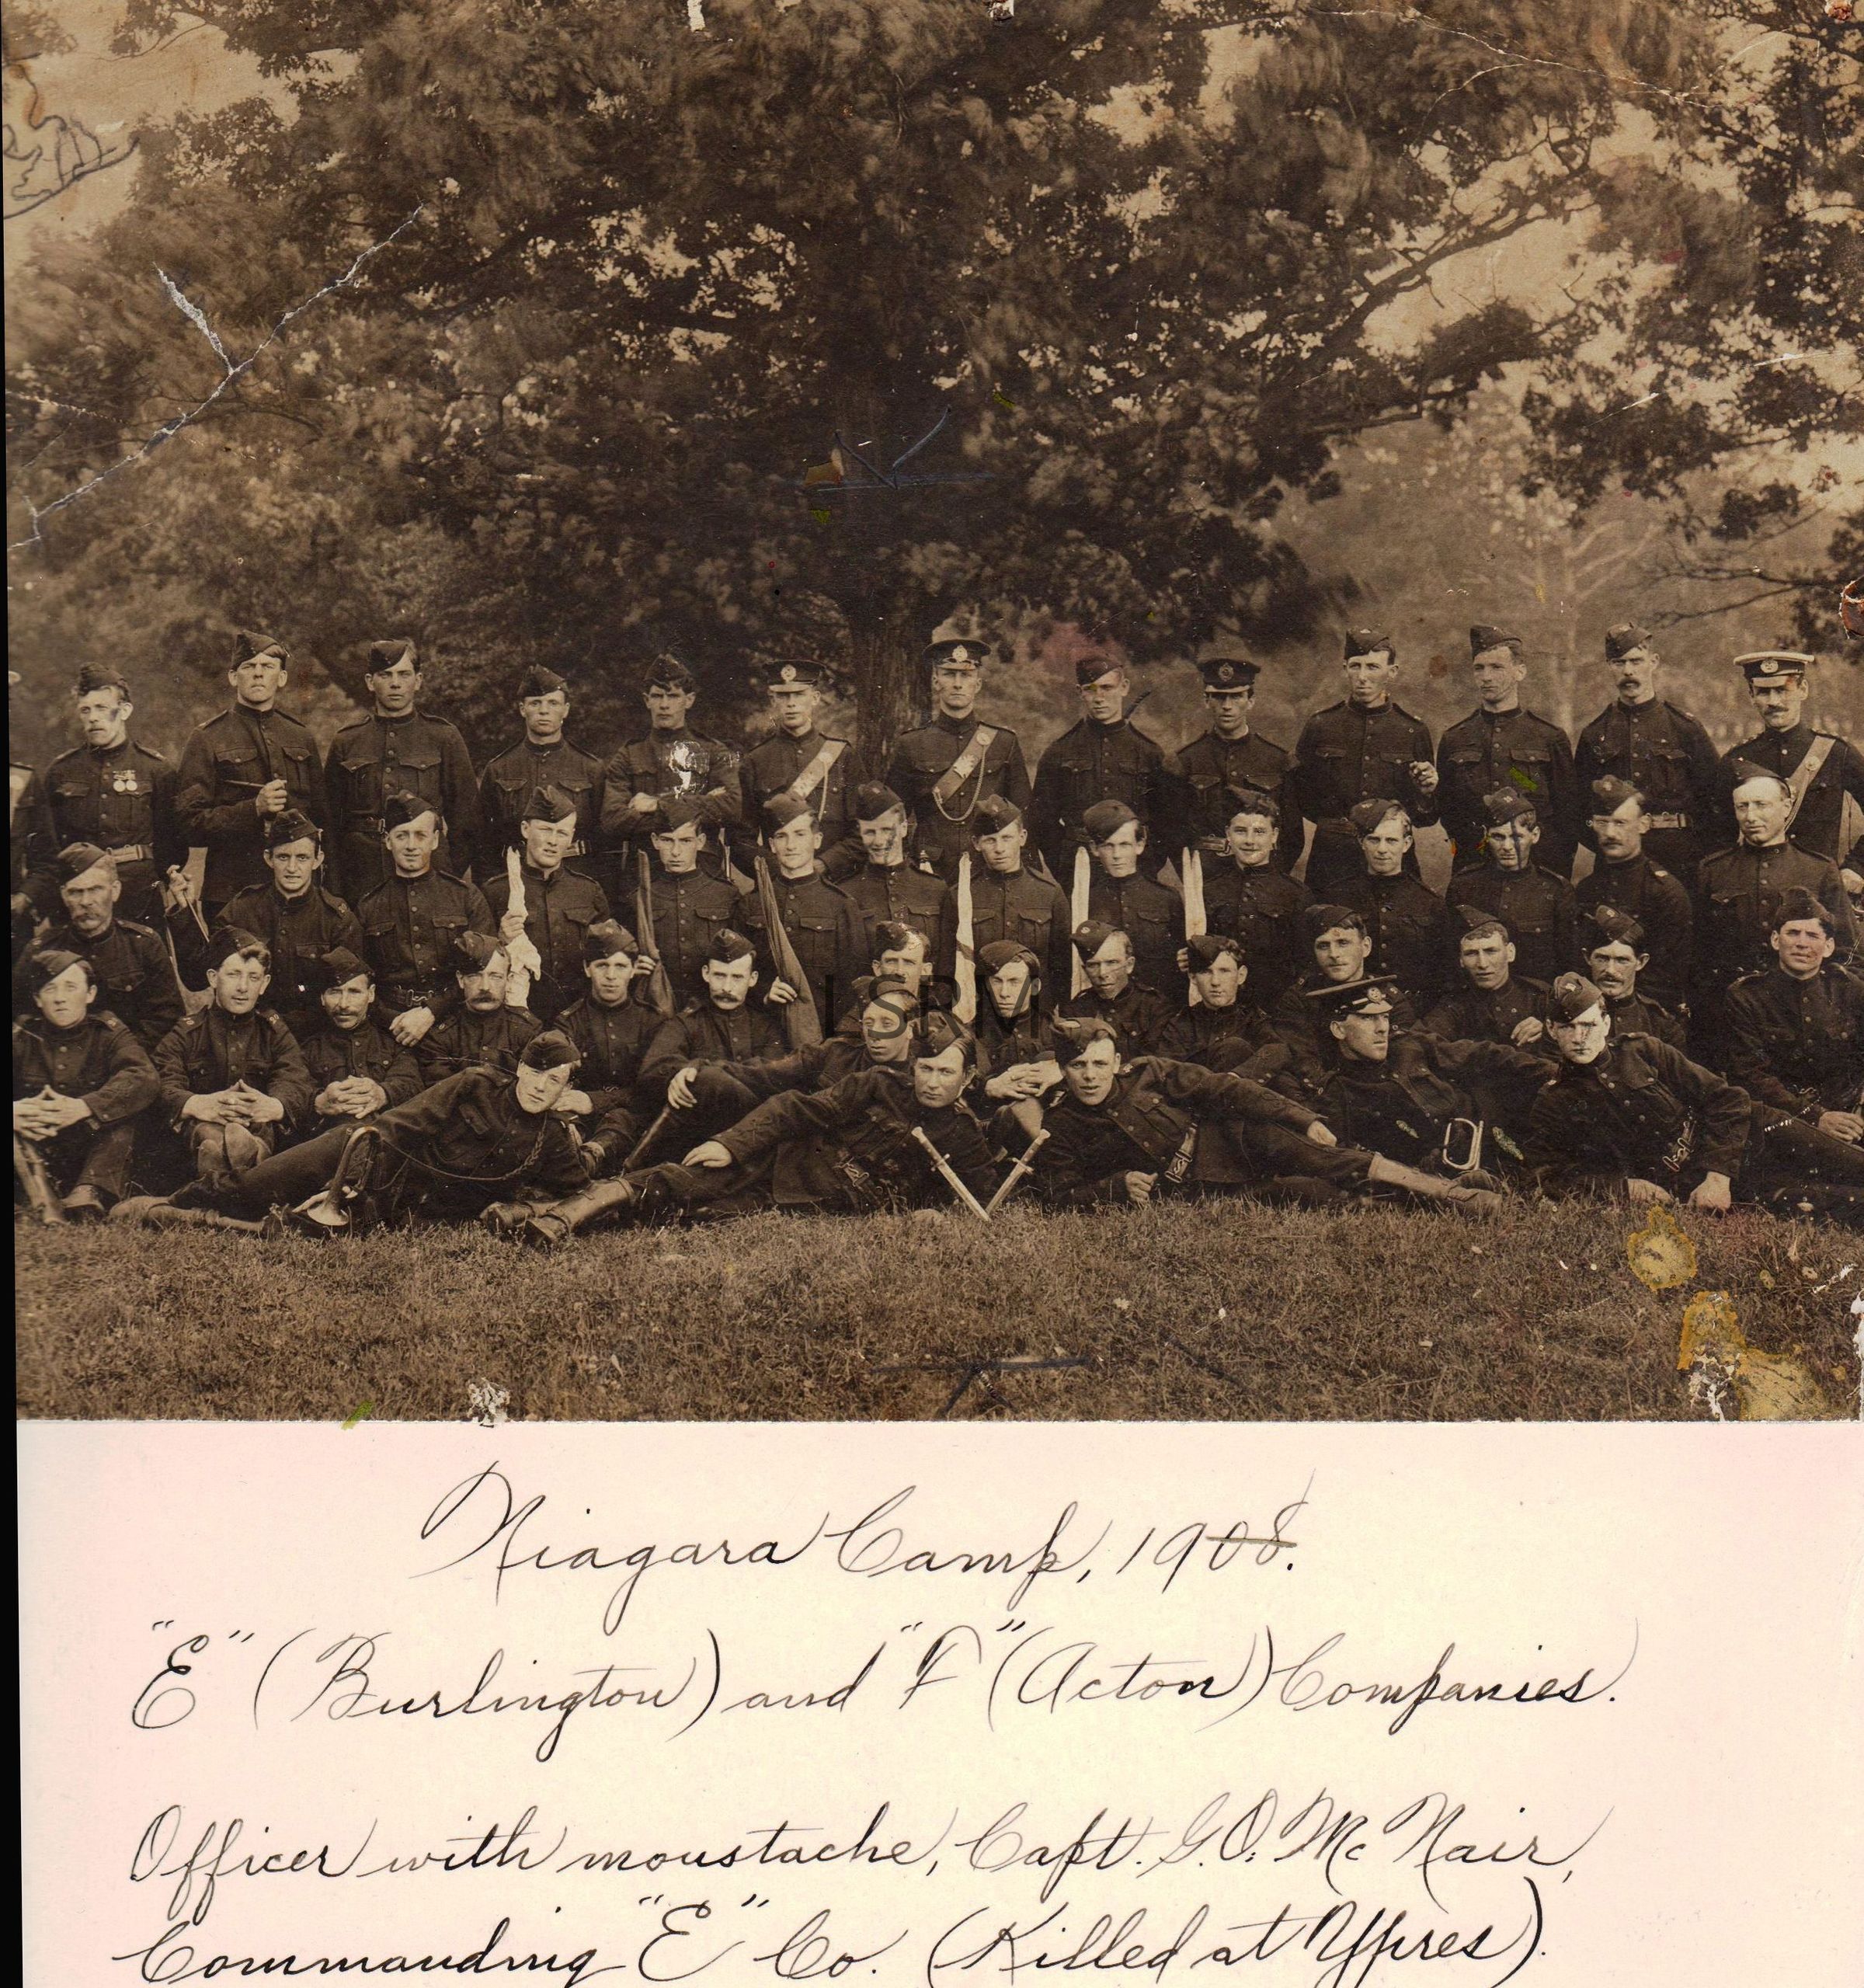 LSRM
Niagara Camp, 1908.
"E" (Burlington) and "F" (Acton) Companies.
Officer with moustache, Capt. G.O. Mc Nair,
Commanding "E" Co. (Killed at Ypres).